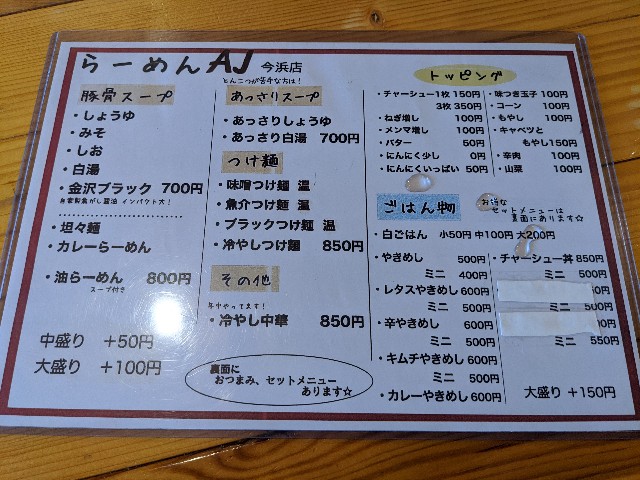 らーめんAJ 今浜店
豚骨スープ
・しょうゆ
・みそ
・しお
・白湯
・金沢ブラック 700円
自家製焦がし醤油 インパクト大！
・坦々麺
・カレーらーめん
・油らーめん 800円
スープ付き
中盛り +50円
大盛り +100円
とんこつが苦手な方は！
あっさりスープ
・あっさりしょうゆ
・あっさり白湯 700円
つけ麺
・味噌つけ麺 温
・魚介つけ麺 温
・ブラックつけ麺 温
・冷やしつけ麺 850円
その他
年中やってます！
・冷やし中華 850円
裏面に
おつまみ、セットメニュー
あります☆
トッピング
・チャーシュー1枚 150円
3枚 350円
・ねぎ増し 100円
・メンマ増し 100円
・バター 50円
・にんにく少し 0円
・にんにくいっぱい 50円
・味つき玉子 100円
・コーン 100円
・もやし 100円
・キャベツと
もやし150円
・辛肉 100円
・山菜 100円
ごはん物
お得な
セットメニューは
裏面にあります☆
・白ごはん 小50円 中100円 大200円
・やきめし 500円
ミニ 400円
・レタスやきめし 600円
ミニ 500円
・辛やきめし 600円
ミニ 500円
・キムチやきめし 600円
ミニ 500円
・カレーやきめし 600円
・チャーシュー丼 850円
ミニ 500円
0円
ミニ 500円
0円
ミニ 550円
大盛り +150円